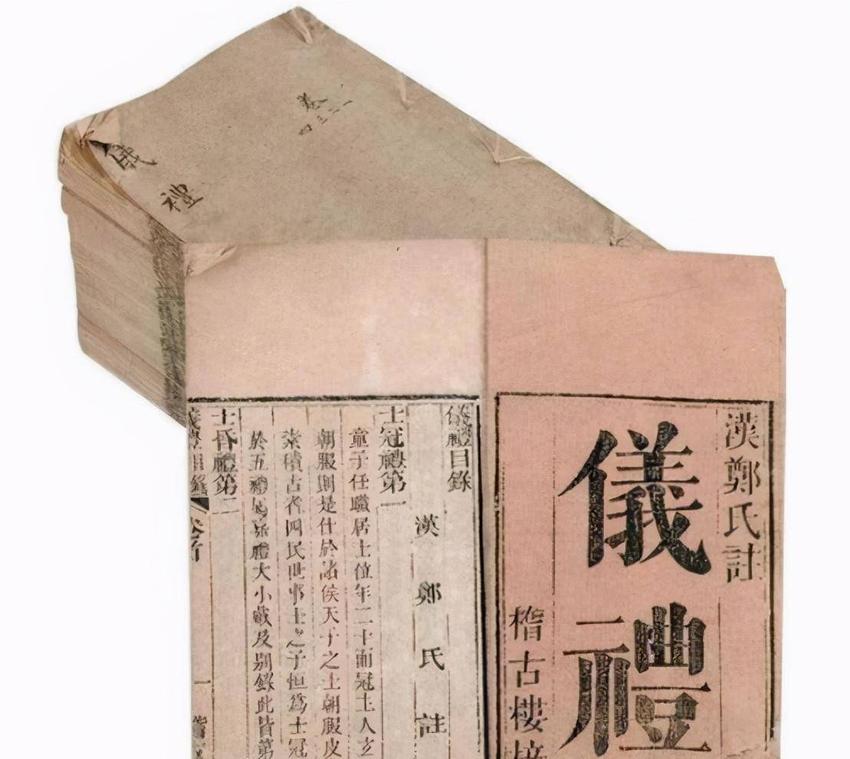 儀禮
卷
漢鄭氏註
儀禮
稽古樓
儀禮目錄
漢鄭氏註
士冠禮第一
童子任職居士位年二十而冠主人玄
朝服則是仕於諸侯天子之士朝服皮
素積古者四民世事士之子恒為士冠
於五禮屬嘉禮大小戴及別錄此皆第
士昏禮第二
儀禮目錄 卷首 一